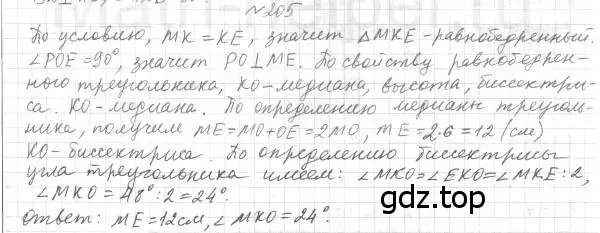 №205
По условию, MK = KE, значит △MKE - равнобедренный.
∠POE = 90°, значит PO⊥ME. По свойству равнобедрен-
ного треугольника, KO - медиана, высота, биссектри-
са. KO - медиана. По определению медианы треуголь-
ника, получим ME = MO + OE = 2MO, ME = 2·6 = 12 (см)
KO - биссектриса. По определению биссектрисы
угла треугольника имеем: ∠MKO = ∠EKO = ∠MKE : 2,
∠MKO = 48° : 2 = 24°.
Ответ: ME = 12 см, ∠MKO = 24°.
gdz.top